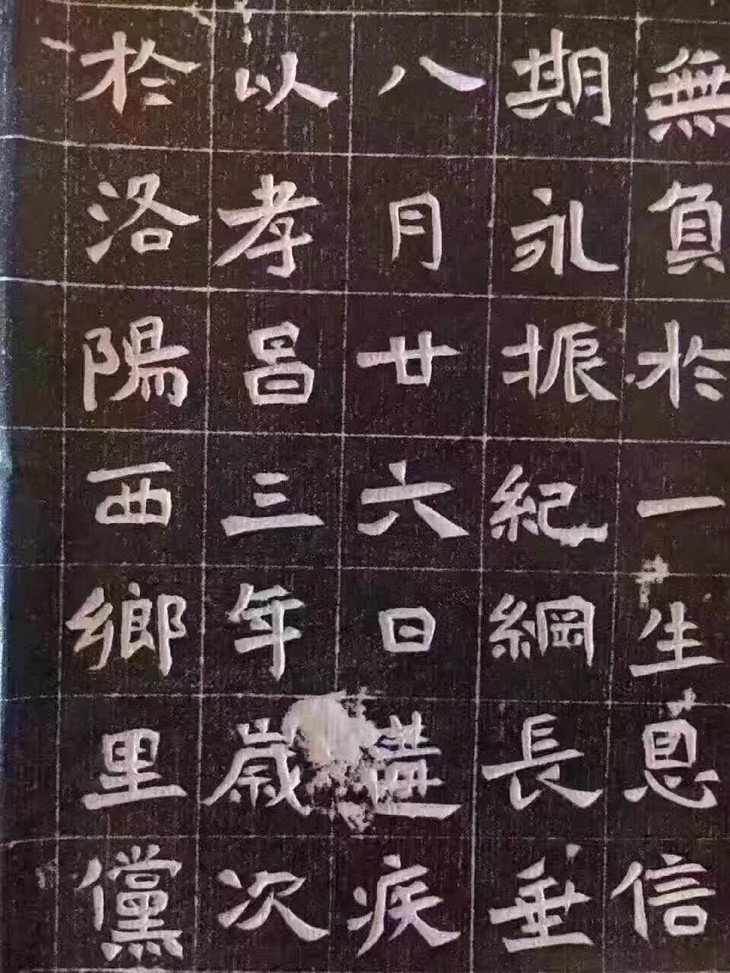 無負於一生恩信
期永振紀綱長垂
八月廿六日遘疾
以孝昌三年歲次
於洛陽西鄉里儻